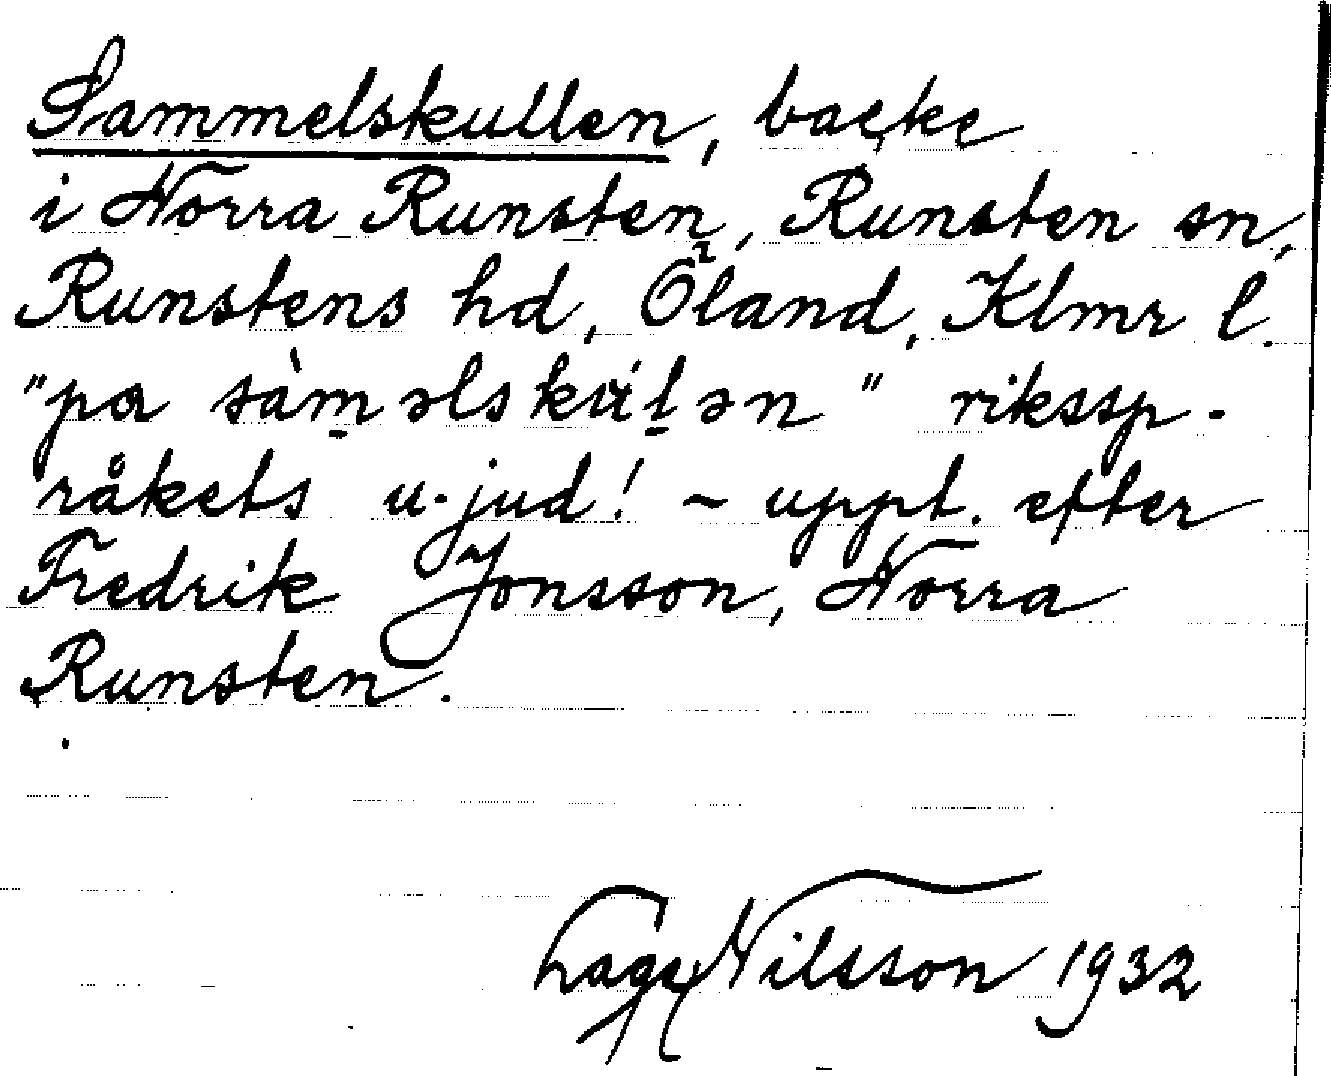 Sammelskullen, backe
i Norra Runsten, Runsten sn,
Runstens hd, Öland, Klmr l.
"pa sàm̱əlskúḻən" rikssp-
råkets u-jud! ~ uppt. efter
Fredrik Jonsson, Norra
Runsten.
Nilsson 1932